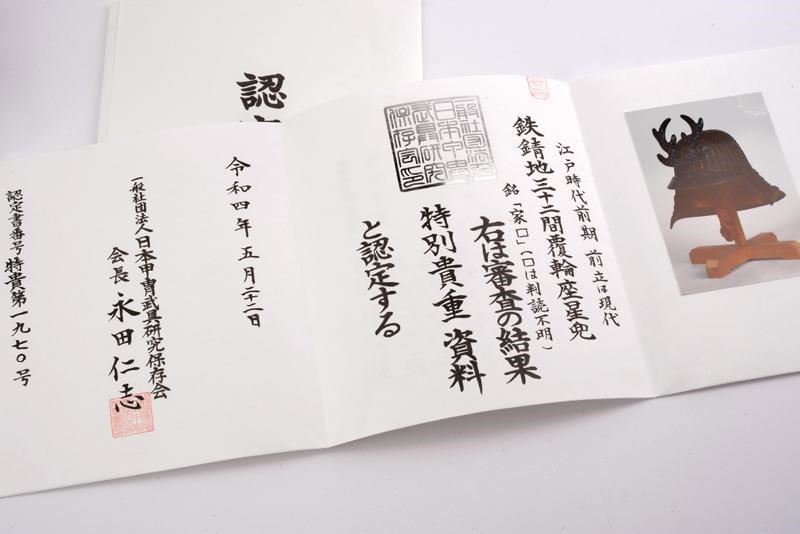 認
江戸時代前期 前立は現代
鉄錆地三十二間覆輪座星兜
銘「家□」(□は判読不明)
右は審査の結果
特別貴重資料
と認定する
令和四年五月二十二日
一般社団法人日本甲冑武具研究保存会
会長 永田仁志
認定書番号 特貴第一九七〇号